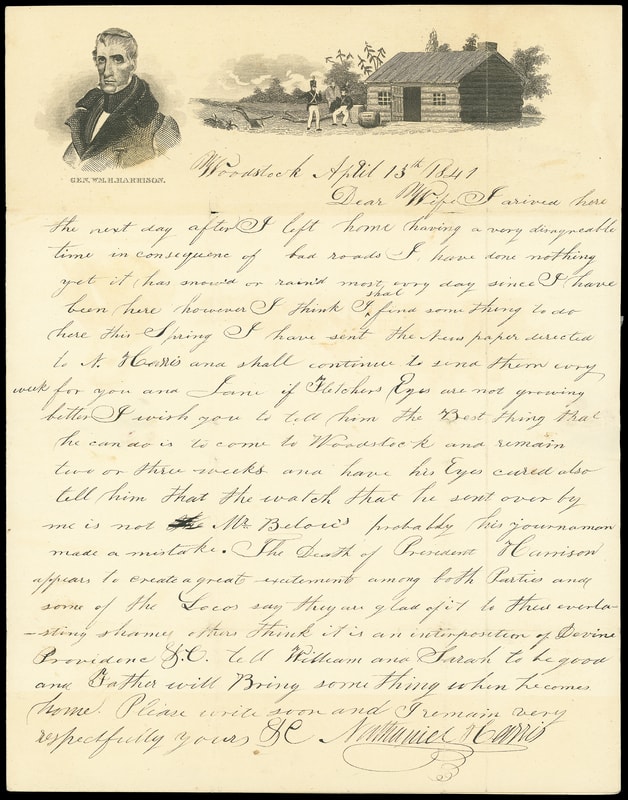 GEN. WM. H. HARRISON.
Woodstock April 13th 1841
Dear Wife I arived here
the next day after I left home having a very disagreeable
time in consequence of bad roads I have done nothing
yet it has snow'd or rain'd most evry day since I have
been here however I think I shal find some thing to do
here this Spring I have sent the News paper directed
to N. Harris and shall continue to send them evry
week for you and Jane if Fletchers Eyes are not growing
better I wish you to tell him the Best thing that
he can do is to come to Woodstock and remain
two or three weeks and have his Eyes cured also
tell him that the watch that he sent over by
me is not Mr. probably his journaman
made a mistake. The Death of President Harrison
appears to create a great excitement among both Parties and
some of the Locos say they are glad of it to their everla-
-sting shame others think it is an interposition of Devine
Providence &.C. tell William and Sarah to be good
and Father will Bring some thing when he comes
home. Please write soon and I remain very
respectfully yours &C Nathaniel Harris